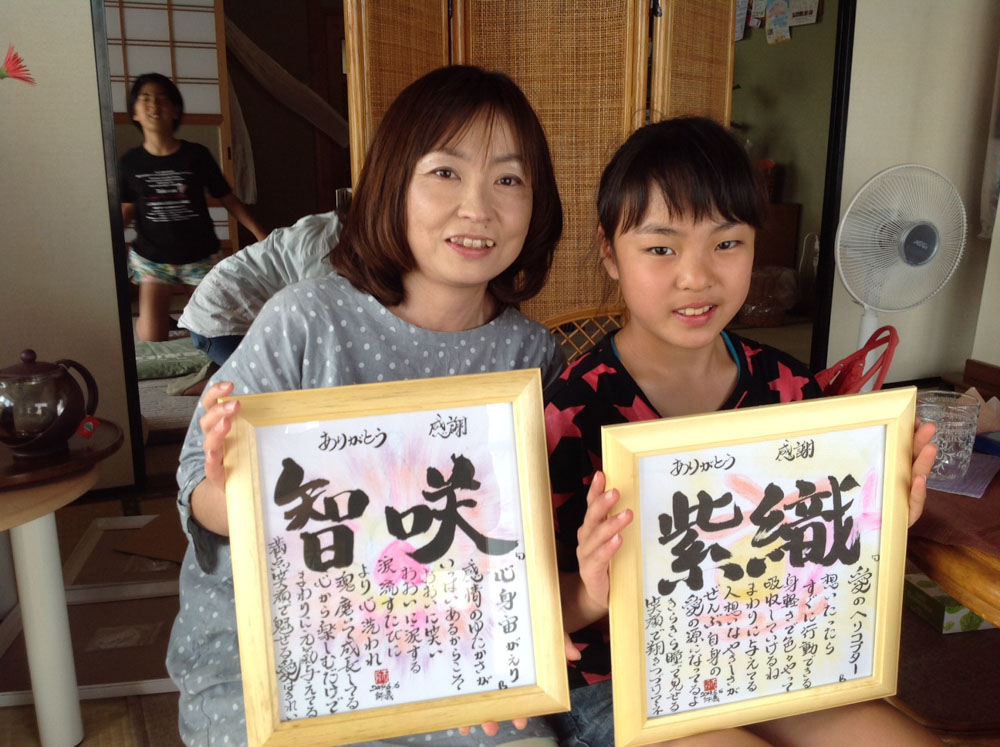 ありがとう 感謝
智咲
『心身宙がえり』
感情のゆたかさが
いっぱいあるからこそ
おおいに笑い
おおいに涙する
涙流すたびに
より心洗われ
魂磨 って成長してる
心から楽しむだけで
まわりに元気与えてる
満点笑顔で魅せる
ありがとう 感謝
紫織
『愛のヘリコプター』
想いたったら
すぐに行動できる
身軽さで色々やって
吸収していけるね
まわりに与えてる
人想いなやさしさが
ぜんぶ自身の
愛の源になってるよ
きらきら瞳で見せる
笑顔で翔きつづけてネ